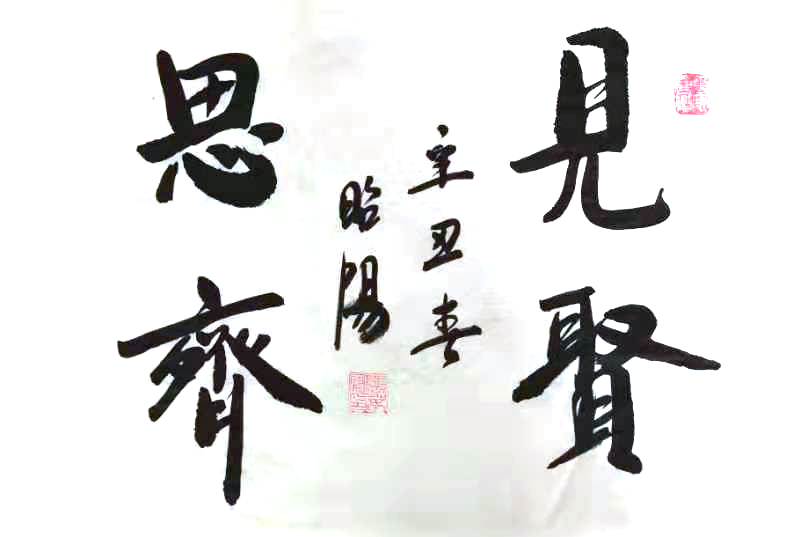 見賢
思齊
辛丑春
昭陽